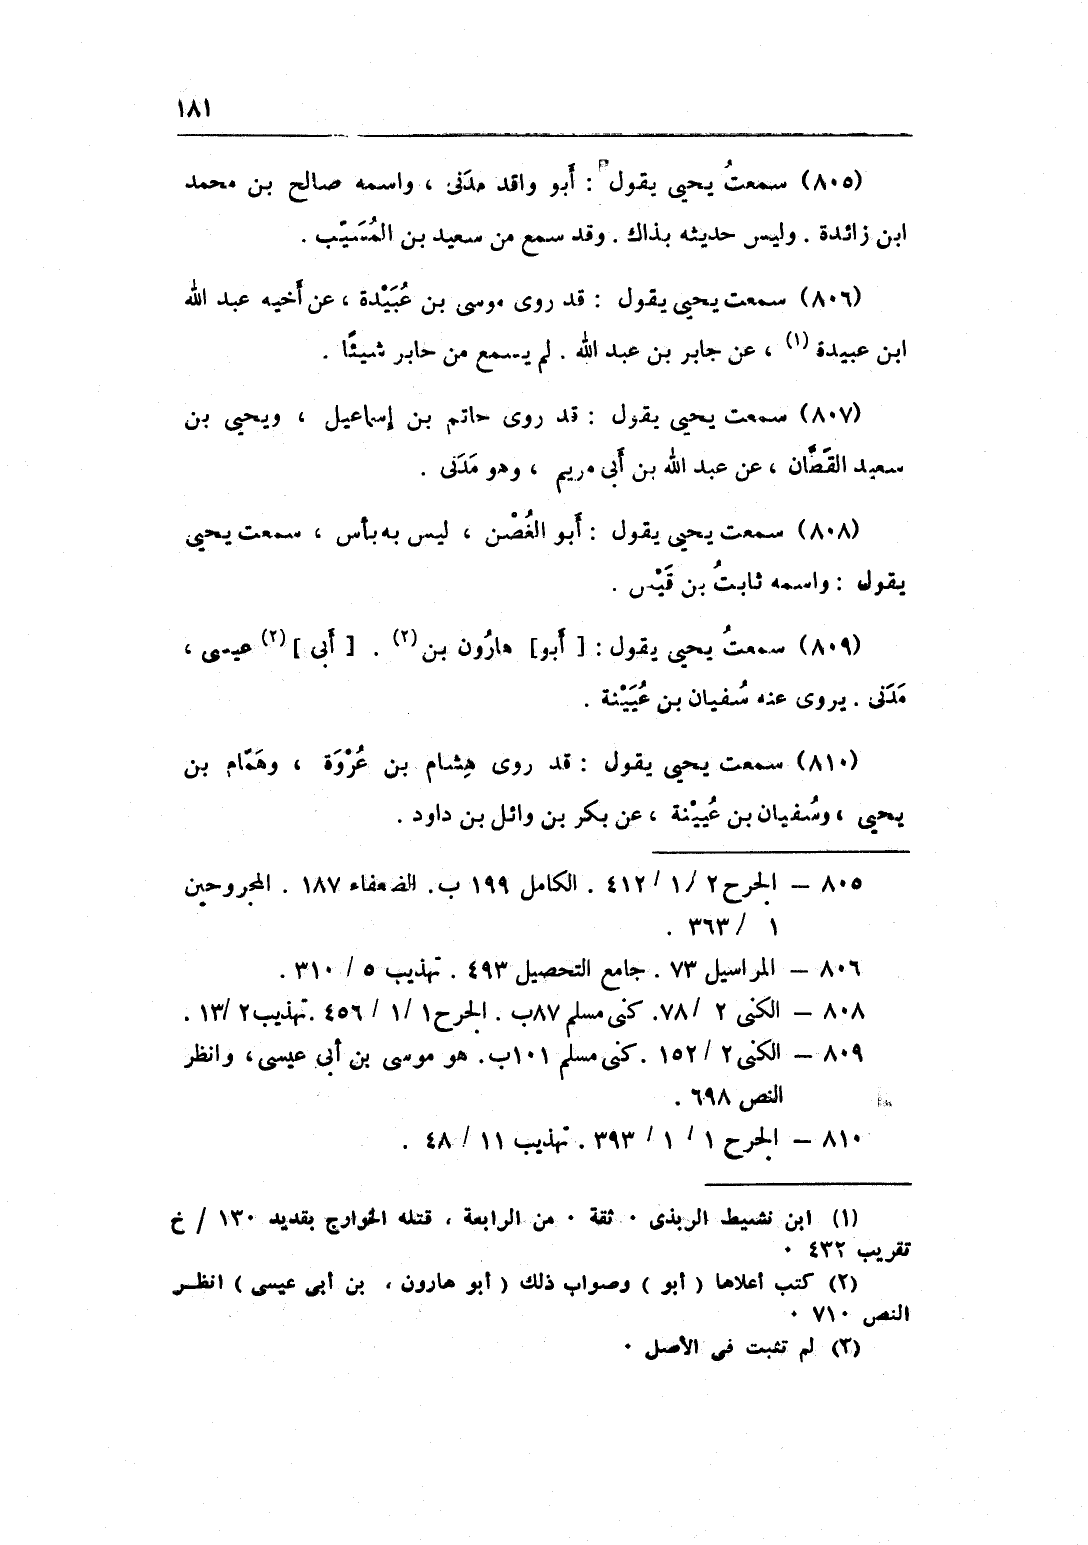 ١٨١
(٨٠٥) سمعتُ يحيى يقول : أَبو واقد مدَنى ، واسمه صالح بن محمد
ابن زائدة . وليس حديثه بذاك . وقد سمع من سعيد بن المُسَيّب .
(٨٠٦) سمعت يحيى يقول : قد روى موسى بن عُبَيْدة ، عن أَخيه عبد الله
ابن عبيدة (١) ، عن جابر بن عبد الله . لم يسمع من جابر شيئًا .
(٨٠٧) سمعت يحيى يقول : قد روى حاتم بن إسماعيل ، ويحيى بن
سعيد القَطَّان ، عن عبد الله بن أَبى مريم ، وهو مَدَنى .
(٨٠٨) سمعت يحيى يقول : أَبو الغُصْن ، ليس به بأس ، سمعت يحيى
يقول : واسمه ثابتُ بن قَيْس .
(٨٠٩) سمعتُ يحيى يقول : [ أَبو] هارُون بن (٢) . [ أَبى ] (٢) عيسى ،
مَدَنى . يروى عنه سُفيان بن عُيَيْنة .
(٨١٠) سمعت يحيى يقول : قد روى هِشام بن عُرْوَة ، وهَمّام بن
يحيى ، وسُفيان بن عُيَيْنة ، عن بكر بن وائل بن داود .
٨٠٥ – الجرح ٢/ ١/ ٤١٢ . الكامل ١٩٩ ب. الضعفاء ١٨٧ . المجروحين
١ / ٣٦٣ .
٨٠٦ – المراسيل ٧٣ . جامع التحصيل ٤٩٣ . تهذيب ٥ / ٣١٠ .
٨٠٨ – الكنى ٢ / ٧٨. كنى مسلم ٨٧ب . الجرح ١/ ١/ ٤٥٦ .تهذيب ٢/ ١٣ .
٨٠٩ – الكنى ٢ / ١٥٢ .كنى مسلم ١٠١ب. هو موسى بن أبى عيسى، وانظر
النص ٦٩٨ .
٨١٠ – الجرح ١ / ١ / ٣٩٣ . تهذيب ١١ / ٤٨ .
(١) ابن نشيط الربذى . ثقة . من الرابعة ، قتله الخوارج بقديد ١٣٠ / خ
تقريب ٤٣٢ .
(٢) كتب أعلاها ( أبو ) وصواب ذلك ( أبو هارون ، بن أبى عيسى ) انظر
النص ٧١٠ .
(٣) لم تثبت فى الأصل .